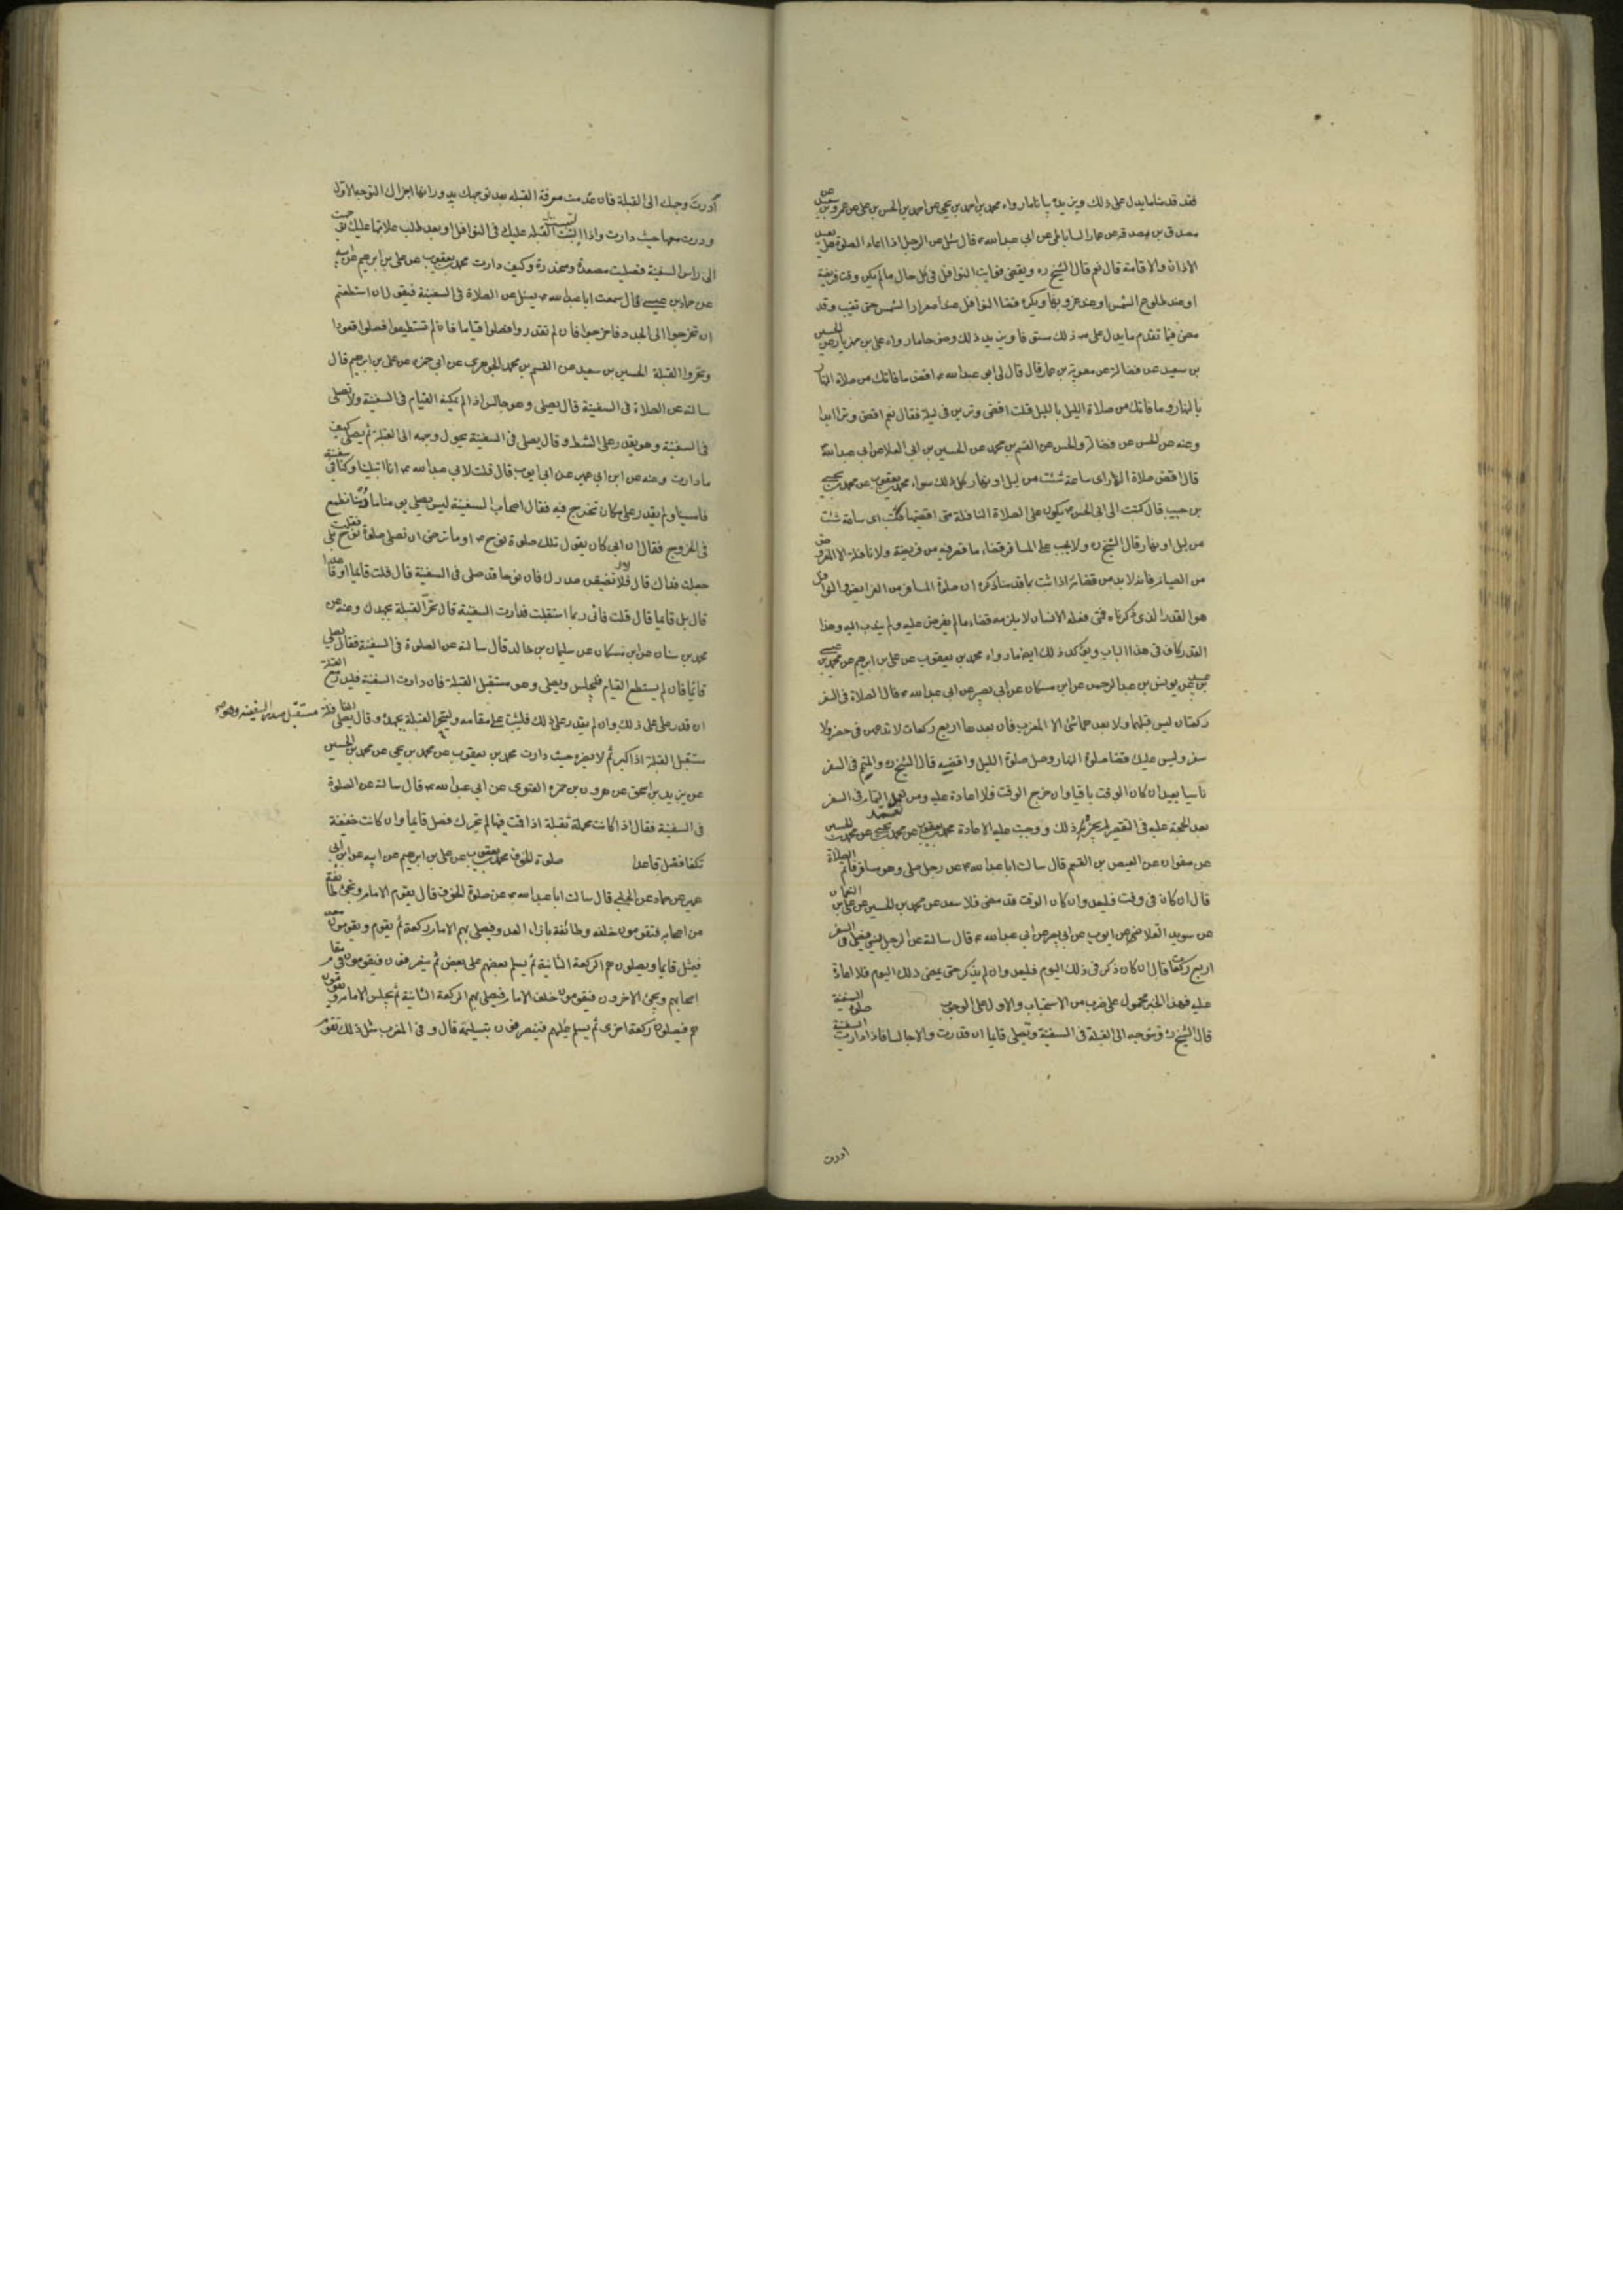 فقد قدمنا ما يدل على ذلك ويزيده بيانا ما رواه محمد بن احمد بن يحيى عن احمد بن الحسن بن على عن عمرو بن سعيد عن
مصدق بن صدقة عن عمار الساباطى عن ابى عبد الله ع قال سئل عن الرجل اذا اعاد الصلوة هل يعيد
الاذان والاقامة قال نعم قال الشيخ ره ويقضى فوايت النوافل فى كل حال ما لم يكن وقت فريضة
او عند طلوع الشمس او عند غروبها ويكره قضاء النوافل عند اصفرار الشمس حتى تغيب وقد
مضى فيما تقدم ما يدل على ذلك مستوفا ويزيد ذلك وضوحا ما رواه على بن مهزيار عن الحسين
بن سعيد عن فضالة عن معوية بن عمار قال قال لى ابو عبد الله ع اقض ما فاتك من صلاة النهار
بالنهار وما فاتك من صلاة الليل بالليل قلت اقضى وترين فى ليلة فقال نعم اقض وترا ابدا
وعنه عن الحسن عن فضالة والحسن عن القسم بن محمد عن الحسين بن ابى العلا عن ابى عبد الله ع
قال اقض صلاة النهار اى ساعة شئت من ليل او نهار كل ذلك سواء محمد بن يعقوب عن محمد بن يحيى
بن حبيب قال كتبت الى ابى الحسن ع يكون على الصلاة النافلة متى اقضيها فكتب اى ساعة شئت
من ليل او نهار قال الشيخ ره ولا يجب على المسافر قضاء ما قصر فيه من فريضة ولا نافلة الا المفروض
من الصيام فانه لا بد من قضائه اذا ثبت بما قدمنا ذكره ان صلوة المسافر من الفرايض والنوافل
هو القدر الذى ذكرناه فمتى فعله الانسان لا يلزمه قضاء ما لم يفرض عليه ولم يندب اليه وهذا
القدر كاف فى هذا الباب ويؤكد ذلك ايضا ما رواه محمد بن يعقوب عن على بن ابراهيم عن محمد بن عيسى
بن عبيد عن يونس بن عبد الرحمن عن ابن مسكان عن ابى بصير عن ابى عبد الله ع قال الصلاة فى السفر
ركعتان ليس قبلهما ولا بعدهما شئ الا المغرب فان بعدها اربع ركعات لا تدعهن فى حضر ولا
سفر وليس عليك قضاء صلوة النهار وصل صلوة الليل واقضيه قال الشيخ ره والمتم فى السفر
ناسيا يعيد ان كان الوقت باقيا وان خرج الوقت فلا اعادة عليه ومن تعمد التمام فى السفر
بعد الحجة عليه فى التقصير لم يجزه ذلك ووجبت عليه الاعادة محمد بن يعقوب عن محمد بن يحيى عن محمد بن الحسين
عن صفوان عن العيص بن القسم قال سالت ابا عبد الله ع عن رجل صلى وهو مسافر فاتم الصلاة
قال ان كان فى وقت فليعد وان كان الوقت قد مضى فلا سعد عن محمد بن الحسين عن على بن النعمان
عن سويد القلا عن ابى ايوب عن ابى بصير عن ابى عبد الله ع قال سالته عن الرجل ينسى فيصلى فى السفر
اربع ركعات قال ان كان ذكر فى ذلك اليوم فليعد وان لم يذكر حتى يمضى ذلك اليوم فلا اعادة
عليه فهذا الخبر محمول على ضرب من الاستحباب والاول على الوجوب صلوة السفينة
قال الشيخ ره وتتوجه الى القبلة فى السفينة وتصلى قايما ان قدرت والا جالسا فاذا دارت السفينة
ادرت
أدرت وجهك الى القبلة فان عدمت معرفة القبلة بعد توجهك بدورانها اجزاك التوجه الاول
ودرت معها حيث دارت واذا التبست القبلة عليك فى النوافل او بعد طلب علاماتها عليك توجهت
الى راس السفينة فصليت مصعدة ومنحدرة وكيف دارت محمد بن يعقوب عن على بن ابراهيم عن ابيه
عن حماد بن عيسى قال سمعت ابا عبد الله ع يسئل عن الصلاة فى السفينة فيقول ان استطعتم
ان تخرجوا الى الجدد فاخرجوا فان لم تقدروا فصلوا قياما فان لم تستطيعوا فصلوا قعودا
وتحروا القبلة الحسين بن سعيد عن القسم بن محمد الجوهرى عن ابى حمزه عن على بن ابراهيم قال
سالته عن الصلاة فى السفينة قال يصلى وهو جالس اذا لم يمكنه القيام فى السفينة ولا يصلى
فى السفينة وهو يقدر على الشط وقال يصلى فى السفينة يحول وجهه الى القبلة ثم يصلى كيف
ما دارت وعنه عن ابن ابى عمير عن ابى ايوب قال قلت لابى عبد الله ع انا ابتلينا وكنا فى سفينة
فامسينا ولم نقدر على مكان نخرج فيه فقال اصحاب السفينة ليس يصلى يومنا ما دمنا نطمع
فى الخروج فقال ان ابى كان يقول تلك صلوة نوح ع اوما ترضى ان تصلى صلوة نوح فقلت بلى
جعلت فداك قال لا يضيقن صدرك فان نوحا قد صلى فى السفينة قال قلت قايما او قاعدا
قال بل قايما قال قلت فانى ربما استقبلت فدارت السفينة قال تحر القبلة بجهدك وعنه عن
محمد بن سنان عن ابن مسكان عن سليمان بن خالد قال سالته عن الصلوة فى السفينة فقال يصلى
قائما فان لم يستطع القيام فليجلس ويصلى وهو مستقبل القبلة فان دارت السفينة فليدر مع القبلة
ان قدر على ذلك وان لم يقدر على ذلك فليثبت على مقامه وليتحر القبلة بجهده وقال يصلى النافلة مستقبل صدر السفينه وهو
مستقبل القبلة اذا كبر ثم لا يضره حيث دارت محمد بن يعقوب عن محمد بن يحيى عن محمد بن الحسين
عن يزيد بن اسحق عن هرون بن حمزه الغنوى عن ابى عبد الله ع قال سالته عن الصلوة
فى السفينة فقال اذا كانت محملة ثقيلة اذا قمت فيها لم تحرك فصل قايما وان كانت خفيفة
تكفا فصل قاعدا صلوة الخوف محمد بن يعقوب عن على بن ابراهيم عن ابيه عن ابن ابى
عمير عن حماد عن الحلبى قال سالت ابا عبد الله ع عن صلوة الخوف قال يقوم الامام وتجئ طائفة
من اصحابه فيقومون خلفه وطائفة بازاء العدو فيصلى بهم الامام ركعة ثم يقوم ويقومون معه
فيمثل قايما ويصلون هم الركعة الثانية ثم يسلم بعضهم على بعض ثم ينصرفون فيقومون فى مقام
اصحابهم ويجئ الاخرون فيقومون خلف الامام فيصلى بهم الركعة الثانية ثم يجلس الامام ويقومون
هم فيصلون ركعة اخرى ثم يسلم عليهم فينصرفون بتسليمة قال وفى المغرب مثل ذلك يقوم